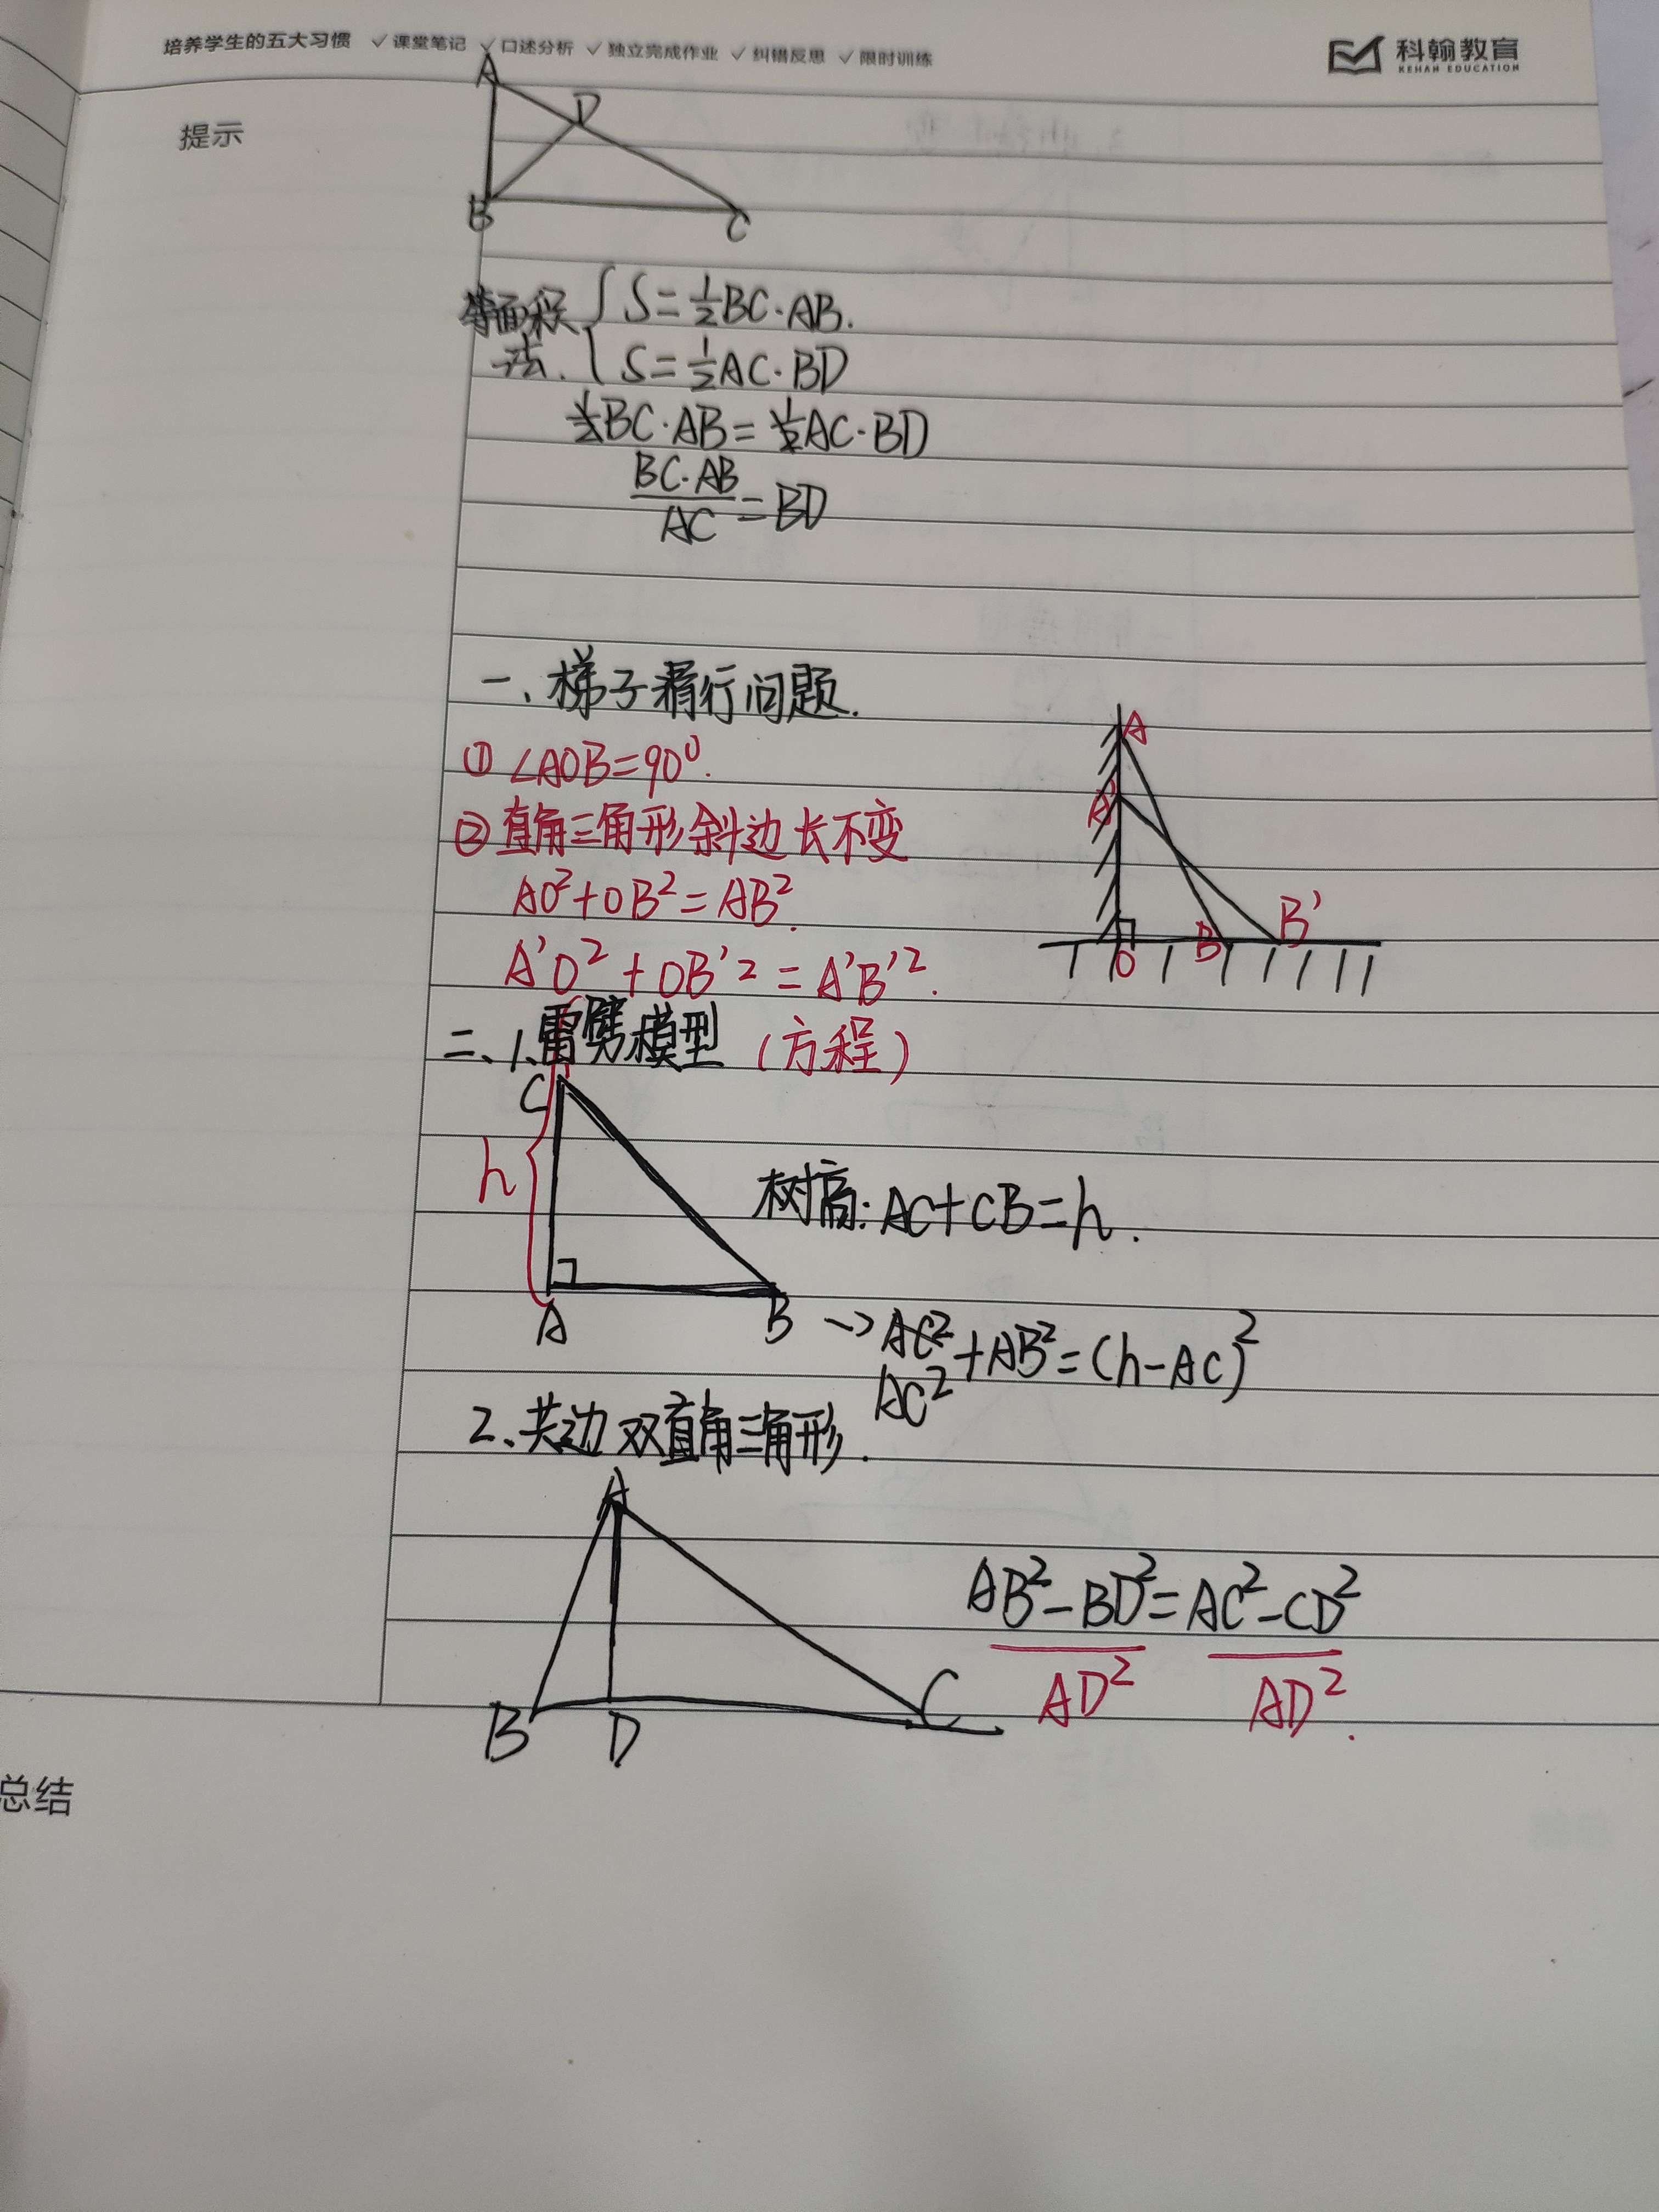 培养学生的五大习惯 ✓课堂笔记 ✓口述分析 ✓独立完成作业 ✓纠错反思 ✓限时训练
科翰教育
KEHAN EDUCATION
提示
A
D
B
C
等面积法. { S=½BC·AB.
S=½AC·BD
½BC·AB=½AC·BD
BC·AB/AC=BD
一、梯子滑行问题.
① ∠AOB=90°.
② 直角三角形斜边长不变
AO²+OB²=AB².
A'O²+OB'²=A'B'².
A
A'
O
B
B'
二、1、雷劈模型（方程）
C
h
A
B
树高: AC+CB=h.
→AC²+AB²=(h-AC)²
AC²
2、共边双直角三角形.
A
B
D
C
AB²-BD²=AC²-CD²
AD² AD².
总结